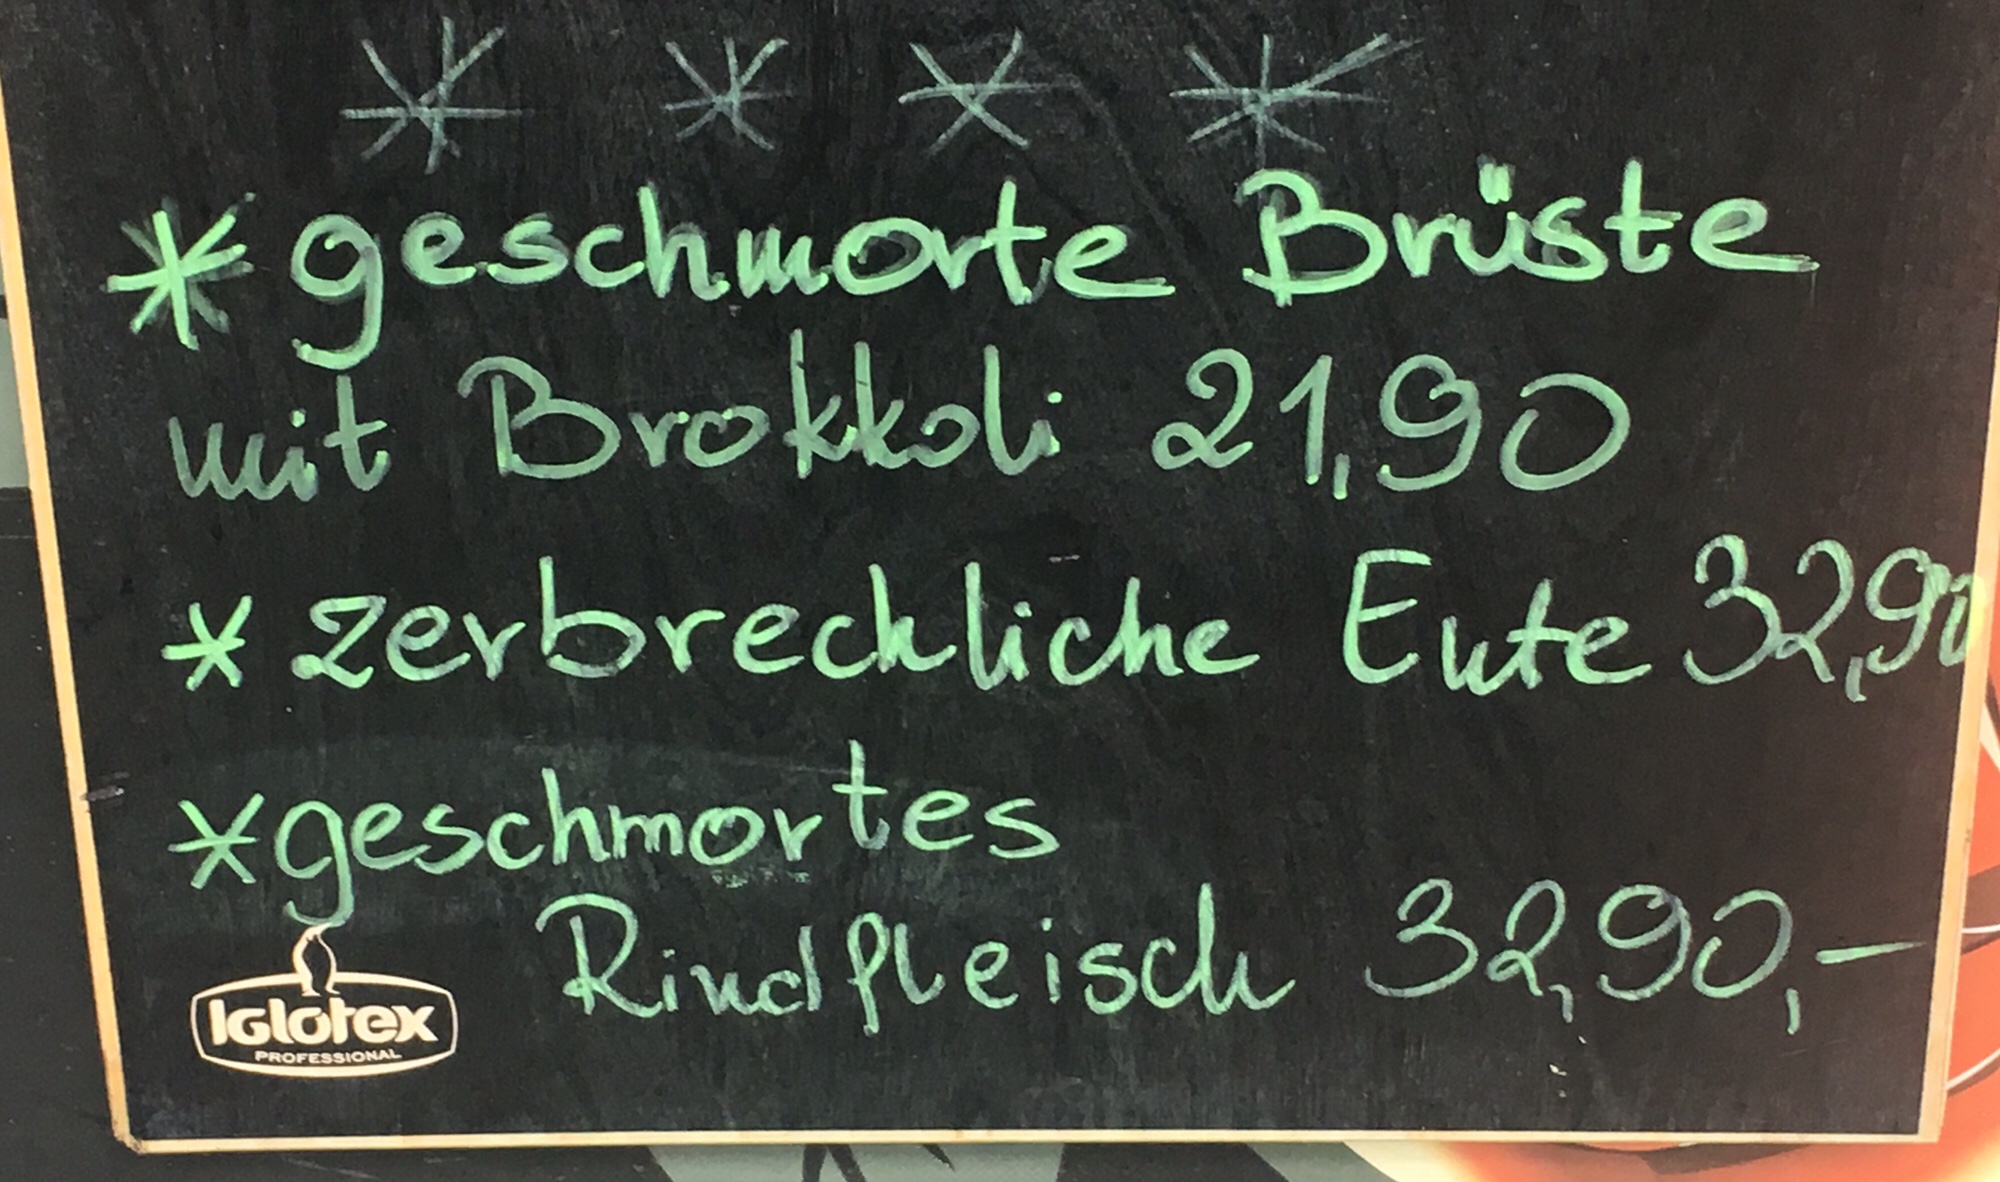 * geschmorte Brüste
mit Brokkoli 21,90
* zerbrechliche Ente 32,90
* geschmortes
Rindfleisch 32,90,-
Iglotex
PROFESSIONAL